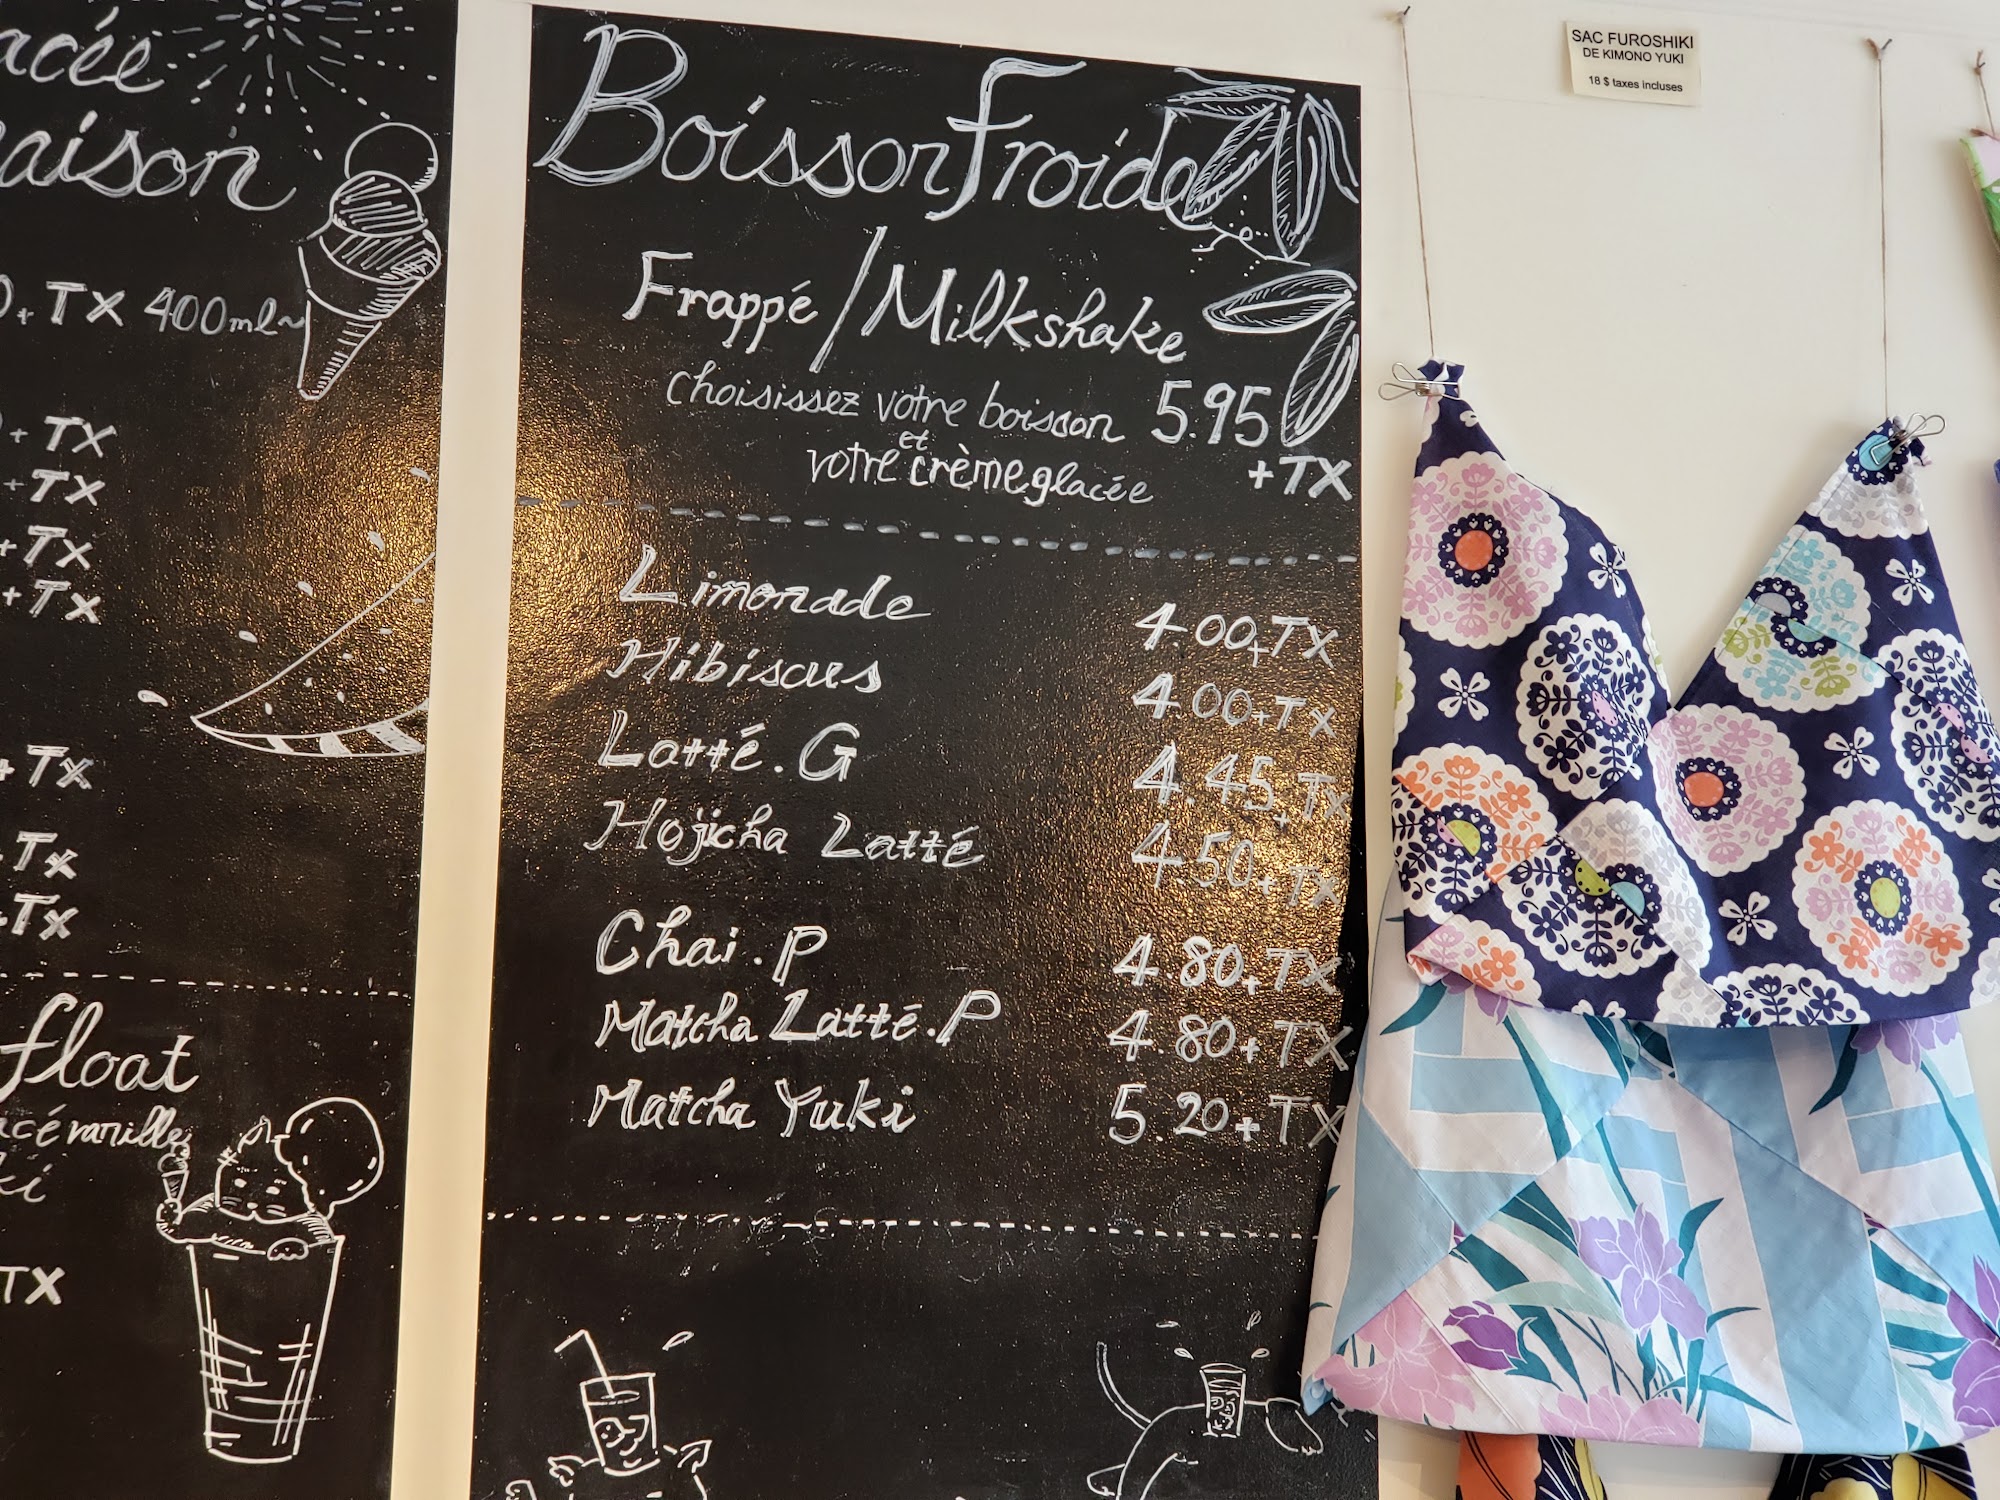 acée
aison
0.+TX 400ml~
+TX
+TX
+TX
+TX
+TX
TX
TX
float
vanille
TX
Boisson Froide
Frappé/Milkshake
choisissez votre boisson 5.95
et
votre crème glacée +TX
Limonade 4.00+TX
Hibiscus 4.00+TX
Latté.G 4.45+TX
Hojicha Latté 4.50+TX
Chai.P 4.80+TX
Matcha Latté.P 4.80+TX
Matcha Yuki 5.20+TX
SAC FUROSHIKI
DE KIMONO YUKI
18 $ taxes incluses